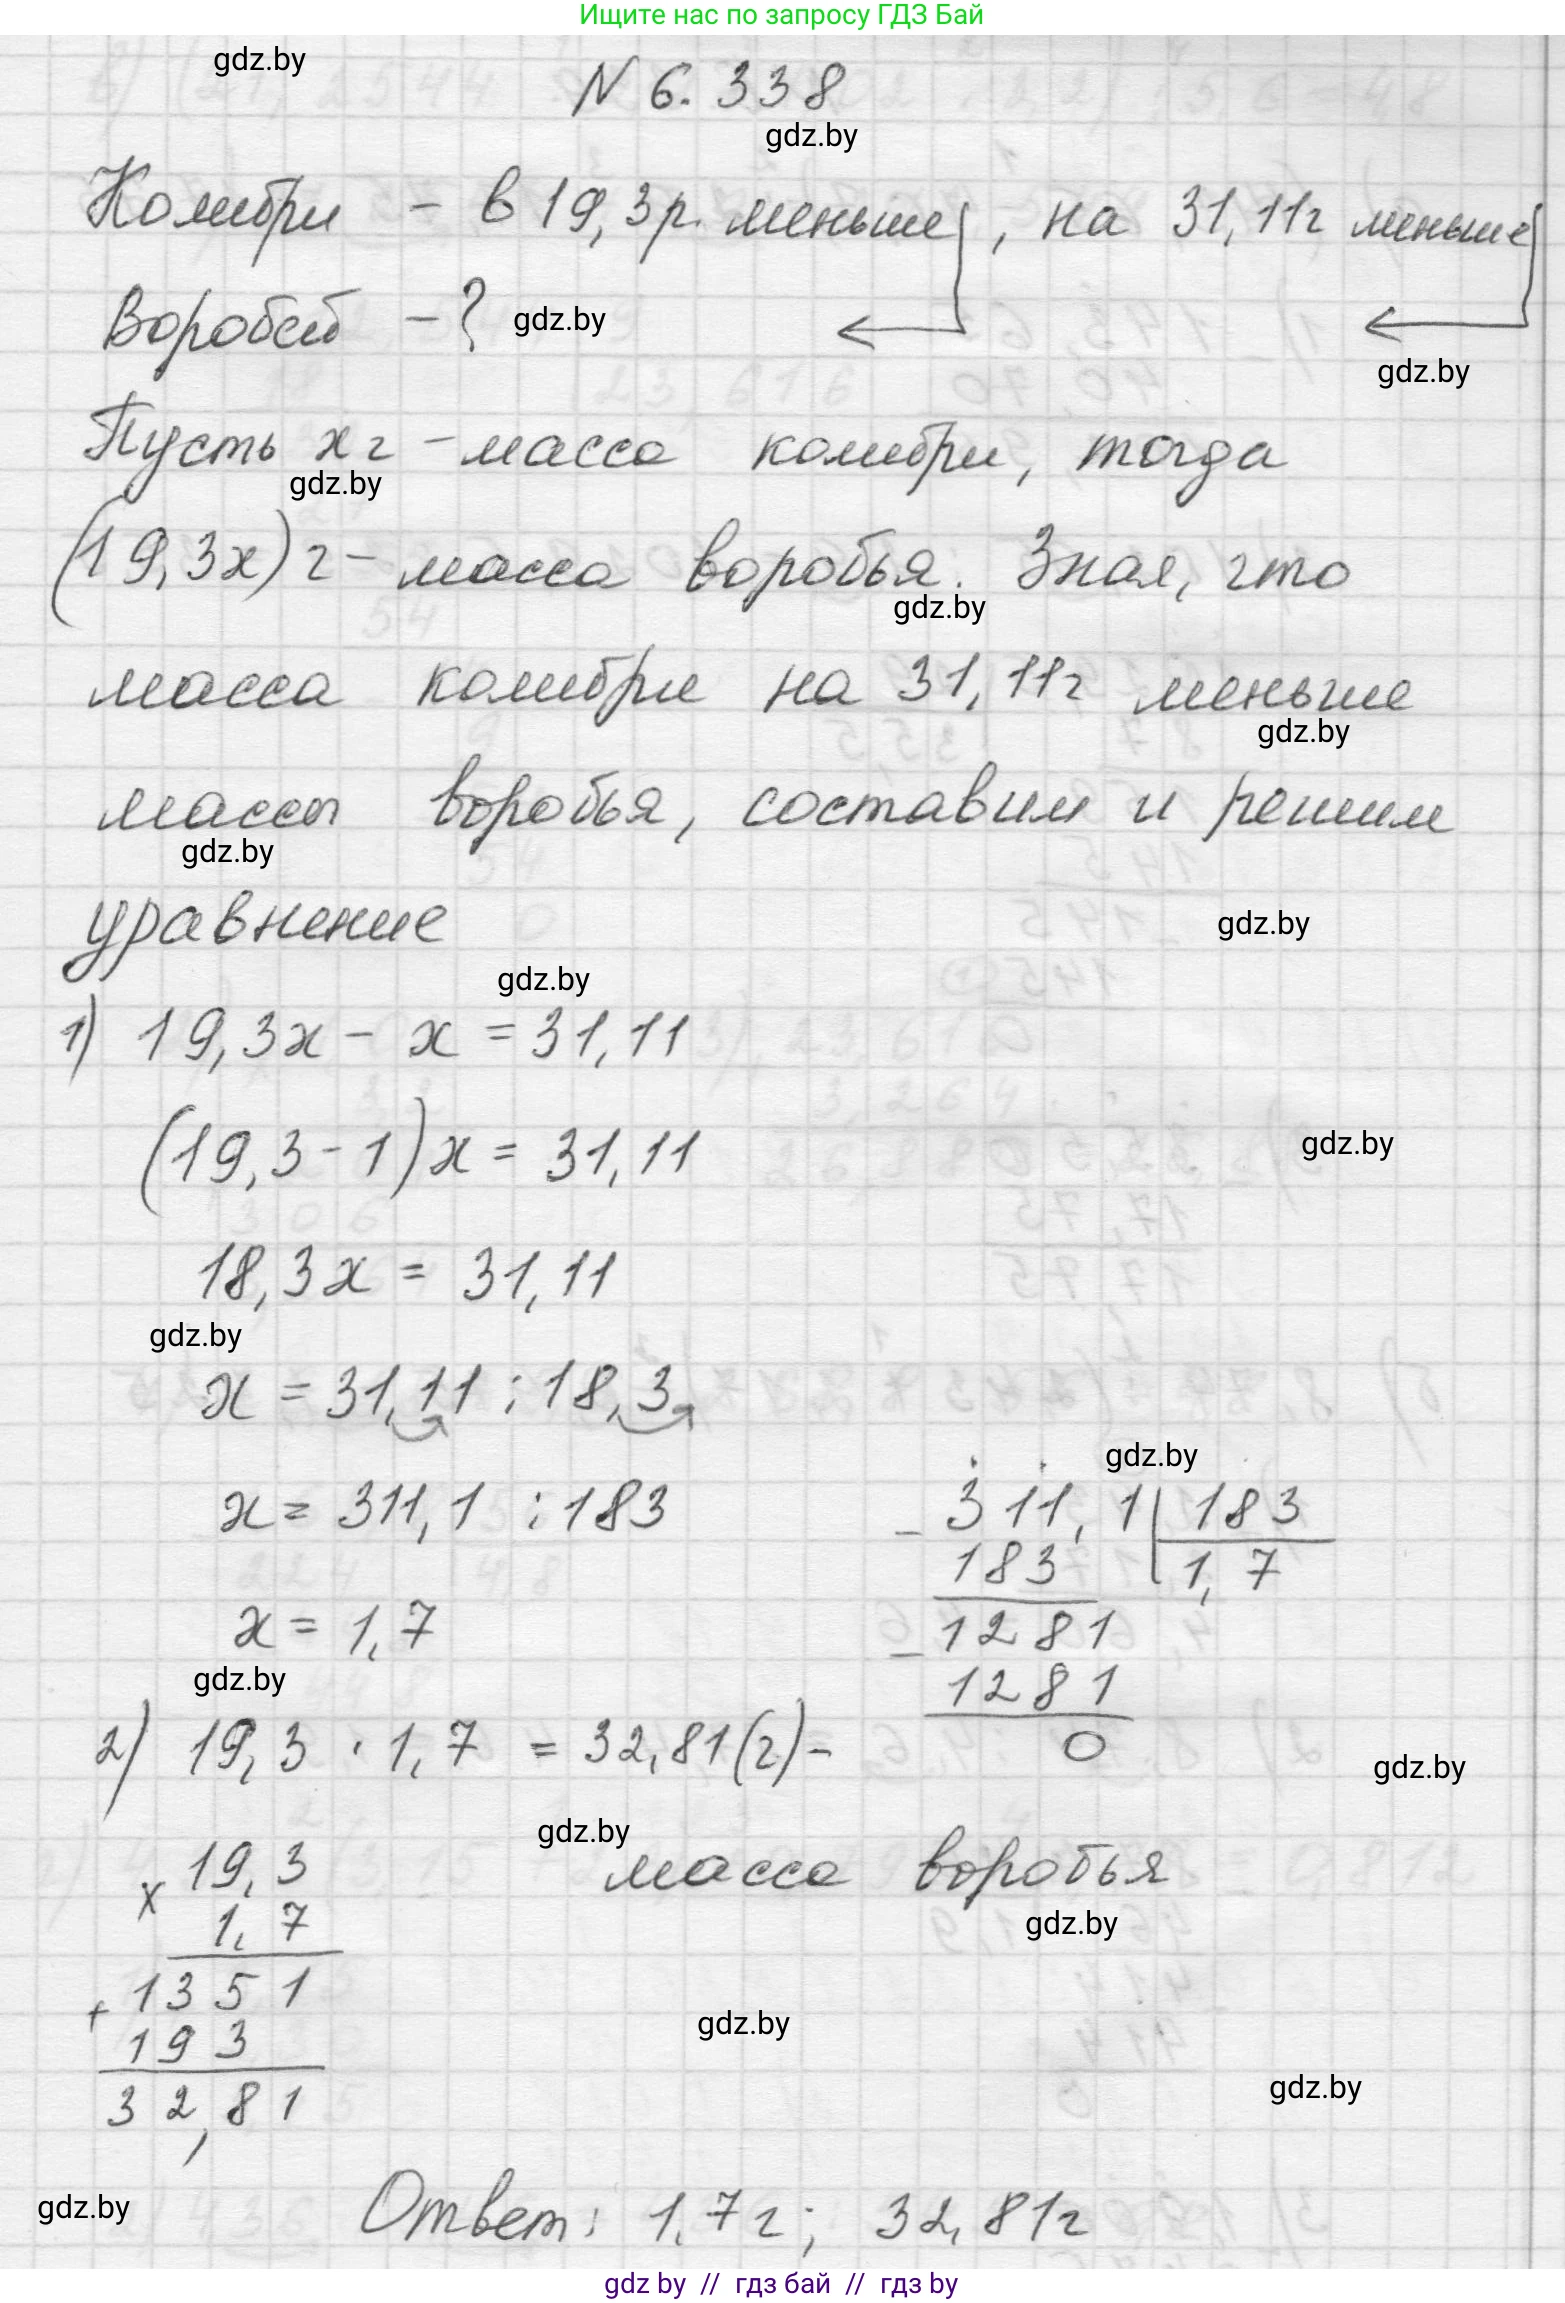 Ищите нас по запросу ГДЗ Бай
gdz.by
N 6.338
gdz.by
Колибри - в 19,3 р. меньше, на 31,11г меньше
Воробей - ?
gdz.by
gdz.by
Пусть x г - масса колибри, тогда
gdz.by
(19,3x) г - масса воробья. Зная, что
gdz.by
масса колибри на 31,11г меньше
gdz.by
массы воробья, составим и решим
gdz.by
уравнение
gdz.by
gdz.by
1) 19,3x - x = 31,11
(19,3 - 1)x = 31,11
gdz.by
18,3x = 31,11
gdz.by
x = 31,11 : 18,3
gdz.by
x = 311,1 : 183
x = 1,7
gdz.by
- 311,1 | 183
183 | 1,7
- 1281
1281
0
2) 19,3 · 1,7 = 32,81 (г) -
gdz.by
gdz.by
масса воробья
gdz.by
x 19,3
1,7
+ 1351
193
32,81
gdz.by
gdz.by
gdz.by
Ответ: 1,7 г; 32,81г
gdz by // гдз бай // гдз by